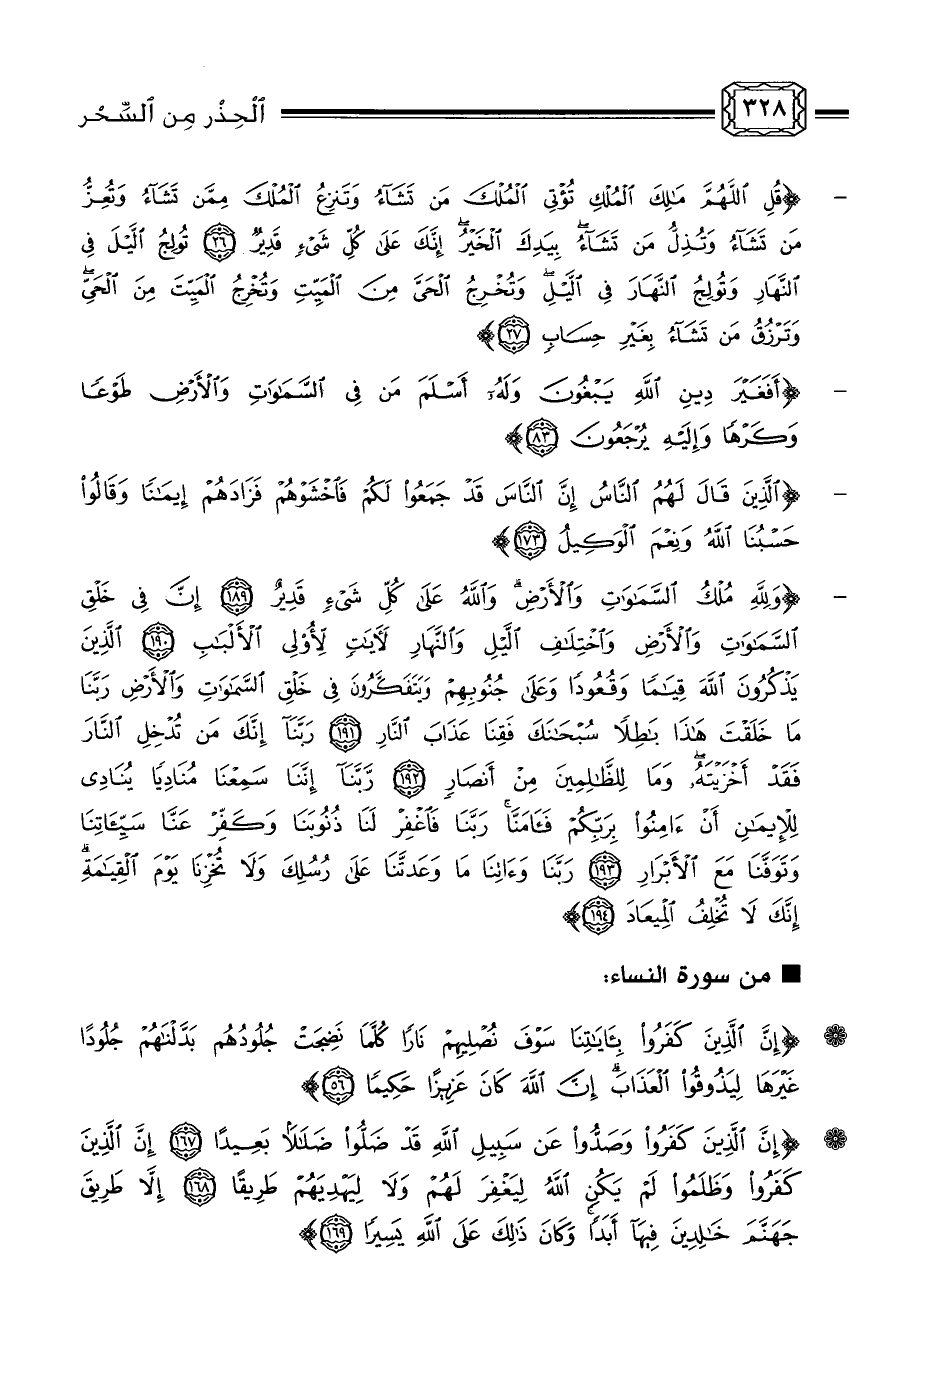 ٣٢٨ ٱلْحِذْر مِن ٱلسِّحْر
- ﴿قُلِ ٱللَّهُمَّ مَـٰلِكَ ٱلْمُلْكِ تُؤْتِى ٱلْمُلْكَ مَن تَشَآءُ وَتَنزِعُ ٱلْمُلْكَ مِمَّن تَشَآءُ وَتُعِزُّ
مَن تَشَآءُ وَتُذِلُّ مَن تَشَآءُ ۖ بِيَدِكَ ٱلْخَيْرُ ۖ إِنَّكَ عَلَىٰ كُلِّ شَىْءٍ قَدِيرٌ ٢٦ تُولِجُ ٱلَّيْلَ فِى
ٱلنَّهَارِ وَتُولِجُ ٱلنَّهَارَ فِى ٱلَّيْلِ ۖ وَتُخْرِجُ ٱلْحَىَّ مِنَ ٱلْمَيِّتِ وَتُخْرِجُ ٱلْمَيِّتَ مِنَ ٱلْحَىِّ ۖ
وَتَرْزُقُ مَن تَشَآءُ بِغَيْرِ حِسَابٍ ٢٧﴾
- ﴿أَفَغَيْرَ دِينِ ٱللَّهِ يَبْغُونَ وَلَهُۥٓ أَسْلَمَ مَن فِى ٱلسَّمَـٰوَٰتِ وَٱلْأَرْضِ طَوْعًا
وَكَرْهًا وَإِلَيْهِ يُرْجَعُونَ ٨٣﴾
- ﴿ٱلَّذِينَ قَالَ لَهُمُ ٱلنَّاسُ إِنَّ ٱلنَّاسَ قَدْ جَمَعُوا۟ لَكُمْ فَٱخْشَوْهُمْ فَزَادَهُمْ إِيمَـٰنًا وَقَالُوا۟
حَسْبُنَا ٱللَّهُ وَنِعْمَ ٱلْوَكِيلُ ١٧٣﴾
- ﴿وَلِلَّهِ مُلْكُ ٱلسَّمَـٰوَٰتِ وَٱلْأَرْضِ ۗ وَٱللَّهُ عَلَىٰ كُلِّ شَىْءٍ قَدِيرٌ ١٨٩ إِنَّ فِى خَلْقِ
ٱلسَّمَـٰوَٰتِ وَٱلْأَرْضِ وَٱخْتِلَـٰفِ ٱلَّيْلِ وَٱلنَّهَارِ لَـَٔايَـٰتٍ لِّأُو۟لِى ٱلْأَلْبَـٰبِ ١٩٠ ٱلَّذِينَ
يَذْكُرُونَ ٱللَّهَ قِيَـٰمًا وَقُعُودًا وَعَلَىٰ جُنُوبِهِمْ وَيَتَفَكَّرُونَ فِى خَلْقِ ٱلسَّمَـٰوَٰتِ وَٱلْأَرْضِ رَبَّنَا
مَا خَلَقْتَ هَـٰذَا بَـٰطِلًا سُبْحَـٰنَكَ فَقِنَا عَذَابَ ٱلنَّارِ ١٩١ رَبَّنَآ إِنَّكَ مَن تُدْخِلِ ٱلنَّارَ
فَقَدْ أَخْزَيْتَهُۥ ۖ وَمَا لِلظَّـٰلِمِينَ مِنْ أَنصَارٍ ١٩٢ رَّبَّنَآ إِنَّنَا سَمِعْنَا مُنَادِيًا يُنَادِى
لِلْإِيمَـٰنِ أَنْ ءَامِنُوا۟ بِرَبِّكُمْ فَـَٔامَنَّا ۚ رَبَّنَا فَٱغْفِرْ لَنَا ذُنُوبَنَا وَكَفِّرْ عَنَّا سَيِّـَٔاتِنَا
وَتَوَفَّنَا مَعَ ٱلْأَبْرَارِ ١٩٣ رَبَّنَا وَءَاتِنَا مَا وَعَدتَّنَا عَلَىٰ رُسُلِكَ وَلَا تُخْزِنَا يَوْمَ ٱلْقِيَـٰمَةِ ۗ
إِنَّكَ لَا تُخْلِفُ ٱلْمِيعَادَ ١٩٤﴾
■ من سورة النساء:
❁ ﴿إِنَّ ٱلَّذِينَ كَفَرُوا۟ بِـَٔايَـٰتِنَا سَوْفَ نُصْلِيهِمْ نَارًا كُلَّمَا نَضِجَتْ جُلُودُهُم بَدَّلْنَـٰهُمْ جُلُودًا
غَيْرَهَا لِيَذُوقُوا۟ ٱلْعَذَابَ ۗ إِنَّ ٱللَّهَ كَانَ عَزِيزًا حَكِيمًا ٥٦﴾
❁ ﴿إِنَّ ٱلَّذِينَ كَفَرُوا۟ وَصَدُّوا۟ عَن سَبِيلِ ٱللَّهِ قَدْ ضَلُّوا۟ ضَلَـٰلًۢا بَعِيدًا ١٦٧ إِنَّ ٱلَّذِينَ
كَفَرُوا۟ وَظَلَمُوا۟ لَمْ يَكُنِ ٱللَّهُ لِيَغْفِرَ لَهُمْ وَلَا لِيَهْدِيَهُمْ طَرِيقًا ١٦٨ إِلَّا طَرِيقَ
جَهَنَّمَ خَـٰلِدِينَ فِيهَآ أَبَدًا ۚ وَكَانَ ذَٰلِكَ عَلَى ٱللَّهِ يَسِيرًا ١٦٩﴾